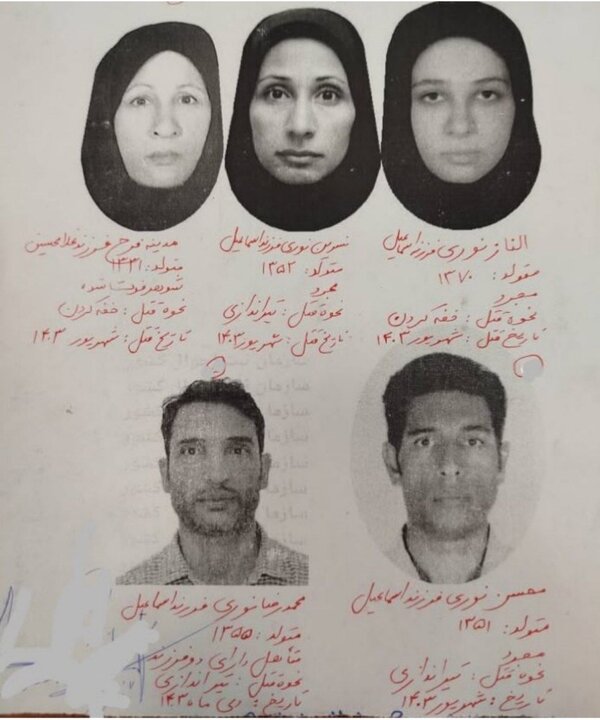 الناز نوری فرزند اسماعیل
متولد : ۱۳۷۰
مجرد
نحوه قتل : خفه کردن
تاریخ قتل : شهریور ۱۴۰۳
نسرین نوری فرزند اسماعیل
متولد : ۱۳۵۲
مجرد
نحوه قتل : تیراندازی
تاریخ قتل : شهریور ۱۴۰۳
مدینه فرخ فرزند غلامحسین
متولد : ۱۳۳۱
شوهر فوت شده
نحوه قتل : خفه کردن
تاریخ قتل : شهریور ۱۴۰۳
محسن نوری فرزند اسماعیل
متولد : ۱۳۵۱
مجرد
نحوه قتل : تیراندازی
تاریخ : شهریور ۱۴۰۳
محمدرضا نوری فرزند اسماعیل
متولد : ۱۳۵۵
متأهل دارای دو فرزند
نحوه قتل : تیراندازی
تاریخ : دی ماه ۱۴۰۳